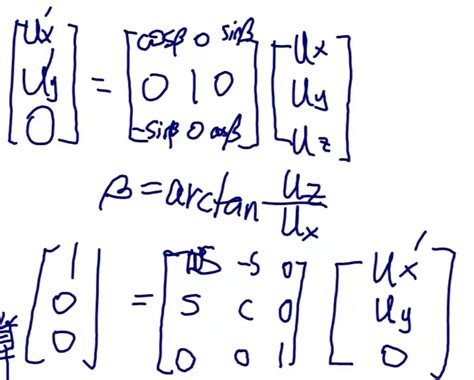 [ux' uy' 0] = [cosβ 0 sinβ; 0 1 0; -sinβ 0 cosβ] [ux uy uz]
β = arctan uz/ux
算 [1 0 0] = [-s 0; s c 0; 0 0 1] [ux' uy 0]